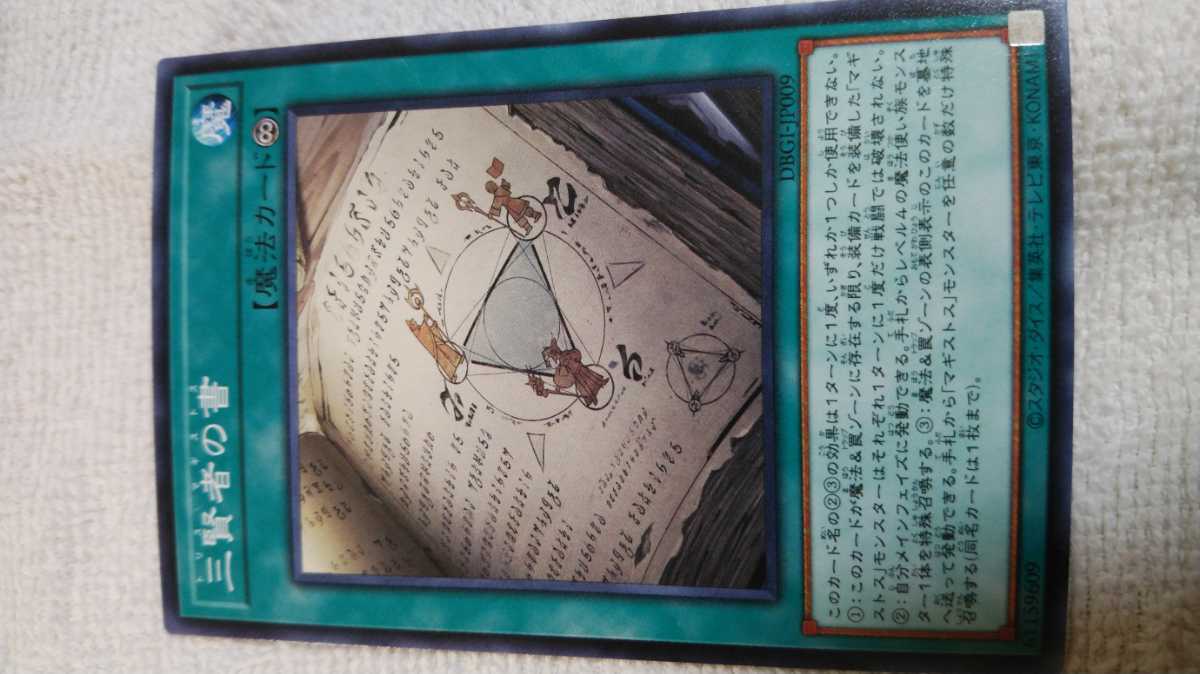 三賢者の書
魔
【魔法カード】
DBG1-JP009
このカード名の②③の効果は1ターンに1度、いずれか1つしか使用できない。
①:このカードが魔法&罠ゾーンに存在する限り、装備カードを装備した「マギ
ストス」モンスターはそれぞれ1ターンに1度だけ戦闘では破壊されない。
②:自分メインフェイズに発動できる。手札からレベル4の魔法使い族モンス
ター1体を特殊召喚する。③:魔法&罠ゾーンの表側表示のこのカードを墓地
へ送って発動できる。手札から「マギストス」モンスターを任意の数だけ特殊
召喚する(同名カードは1枚まで)。
©スタジオ・ダイス/集英社・テレビ東京・KONAMI